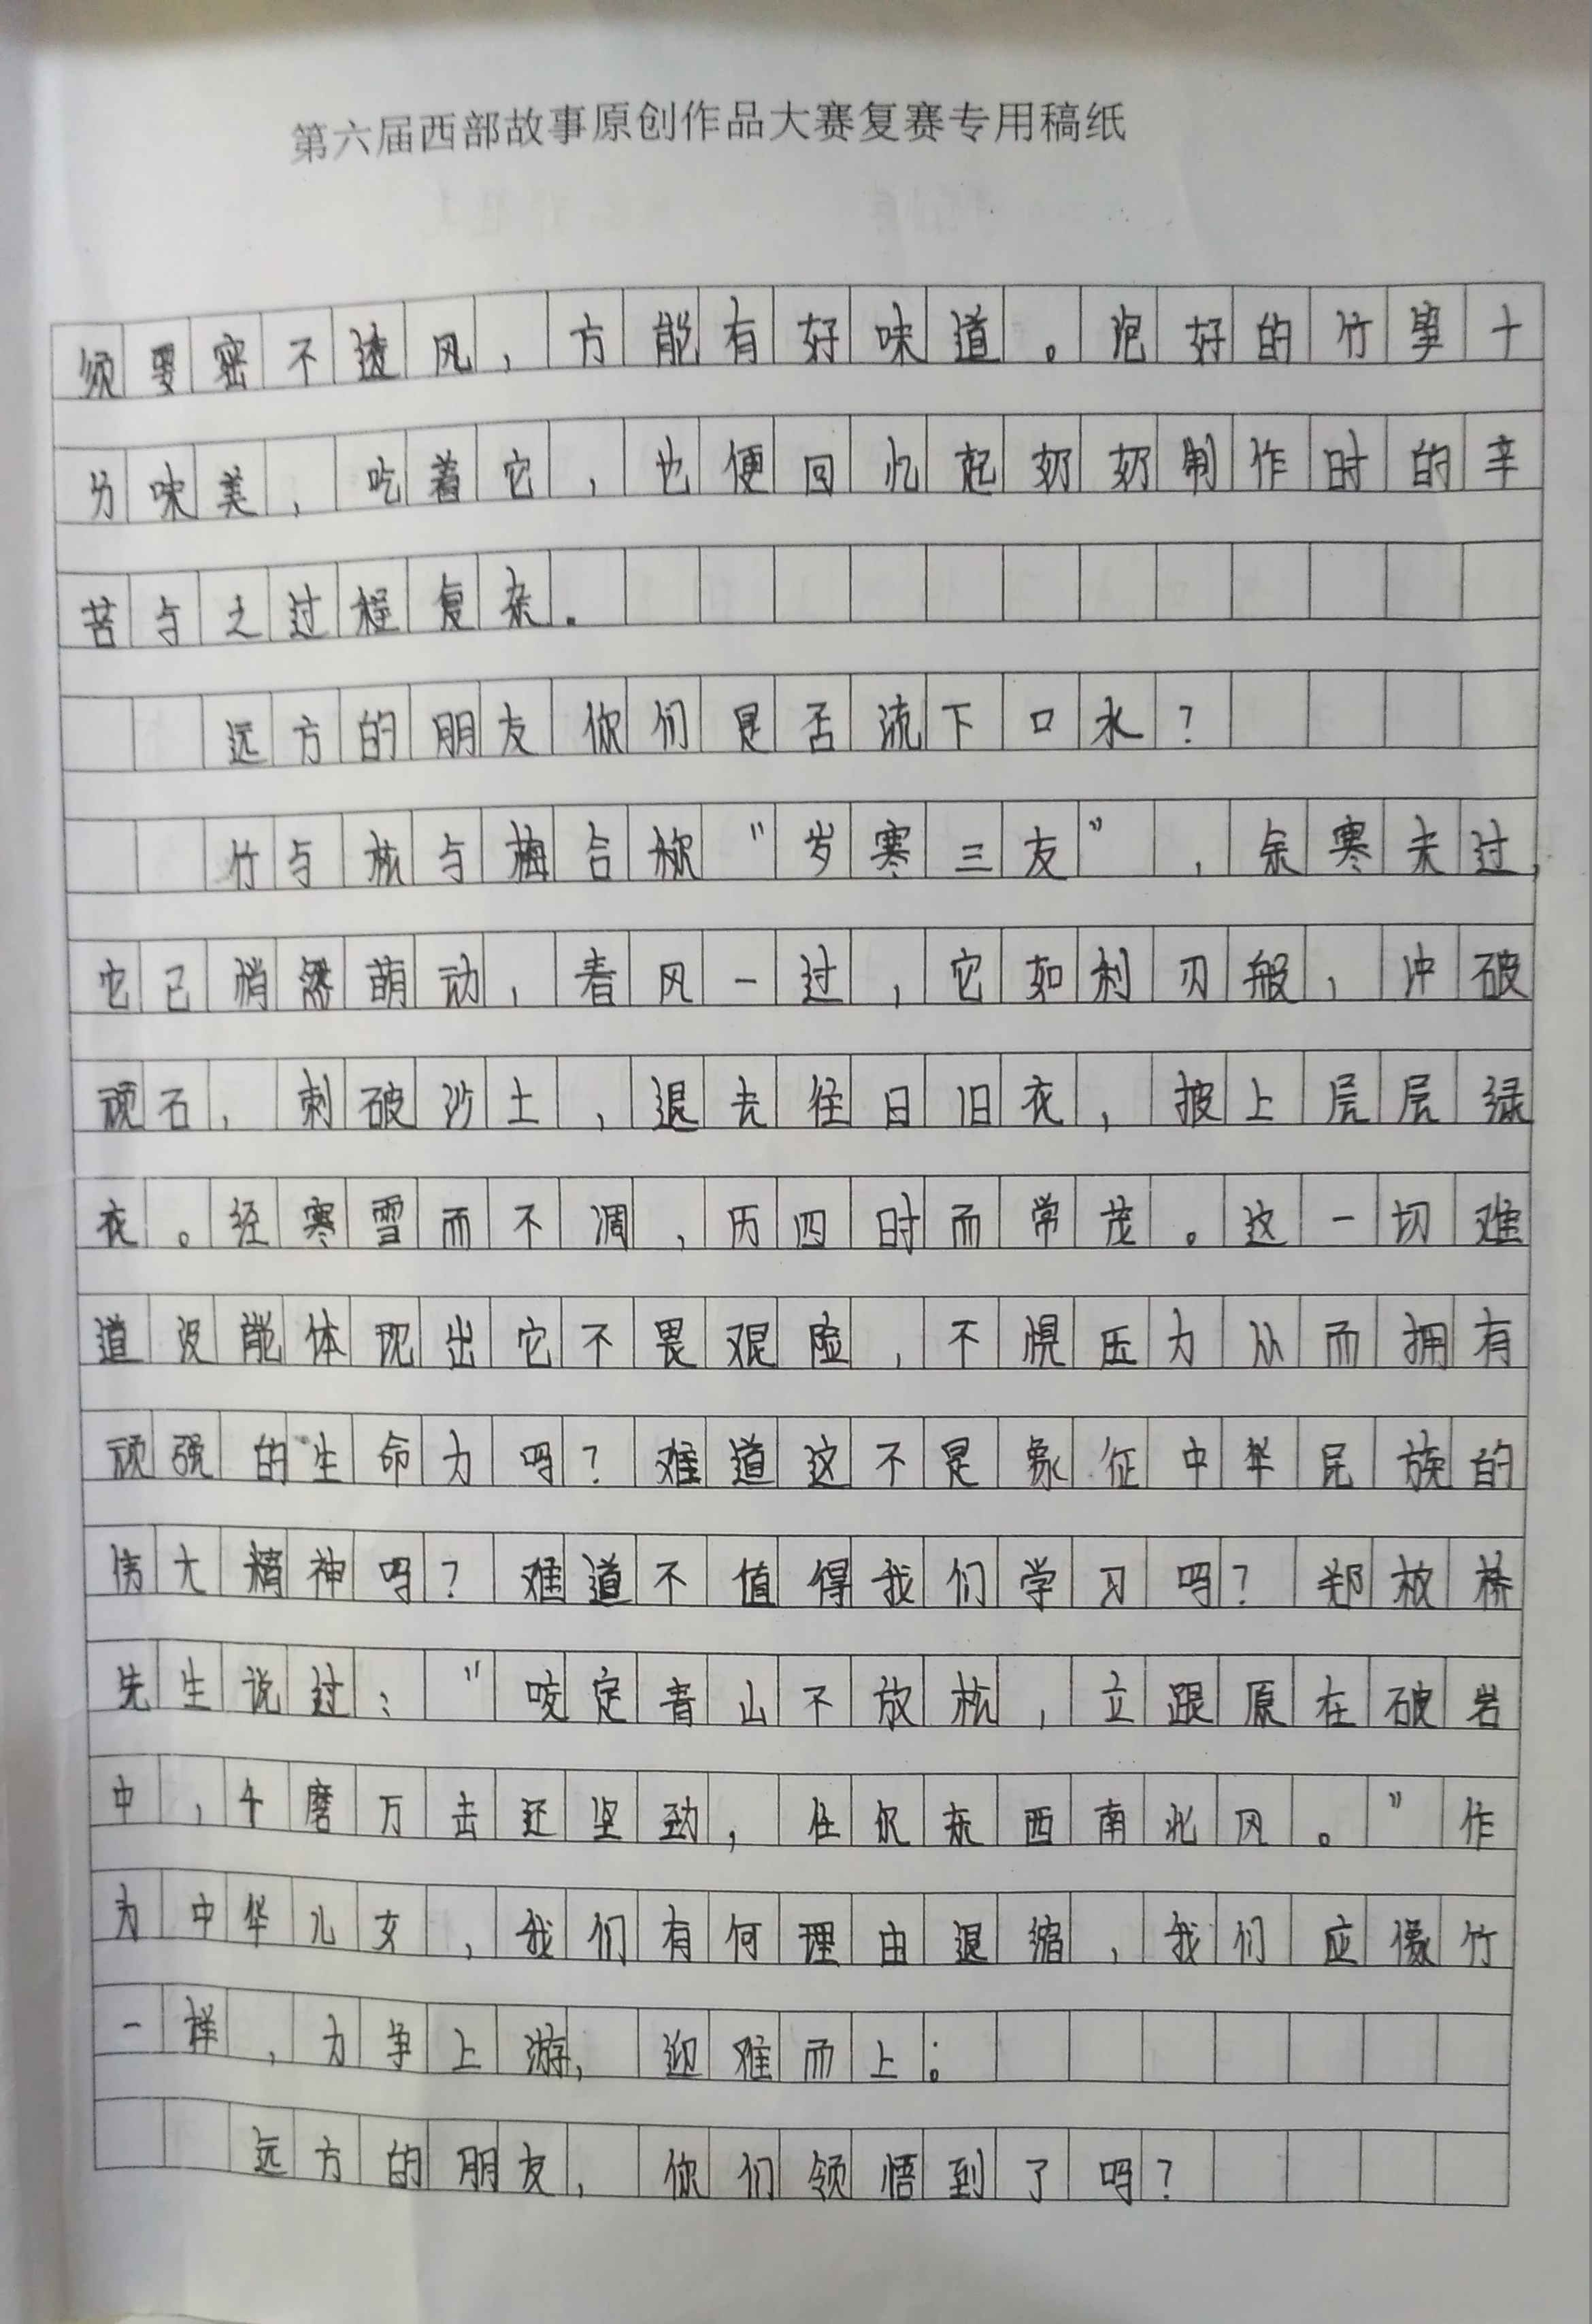 第六届西部故事原创作品大赛复赛专用稿纸
须要密不透风，方能有好味道。泡好的竹笋十
分味美，吃着它，也便回忆起奶奶制作时的辛
苦与之过程复杂。
远方的朋友你们是否流下口水？
竹与松与梅合称“岁寒三友”，余寒未过，
它已悄然萌动，春风一过，它如利刃般，冲破
顽石，刺破沙土，退去往日旧衣，披上层层绿
衣。经寒雪而不凋，历四时而常茂。这一切难
道没能体现出它不畏艰险，不惧压力从而拥有
顽强的生命力吗？难道这不是象征中华民族的
伟大精神吗？难道不值得我们学习吗？郑板桥
先生说过：“咬定青山不放松，立跟原在破岩
中，千磨万击还坚劲，任尔东西南北风。”作
为中华儿女，我们有何理由退缩，我们应像竹
一样，力争上游，迎难而上。
远方的朋友，你们领悟到了吗？